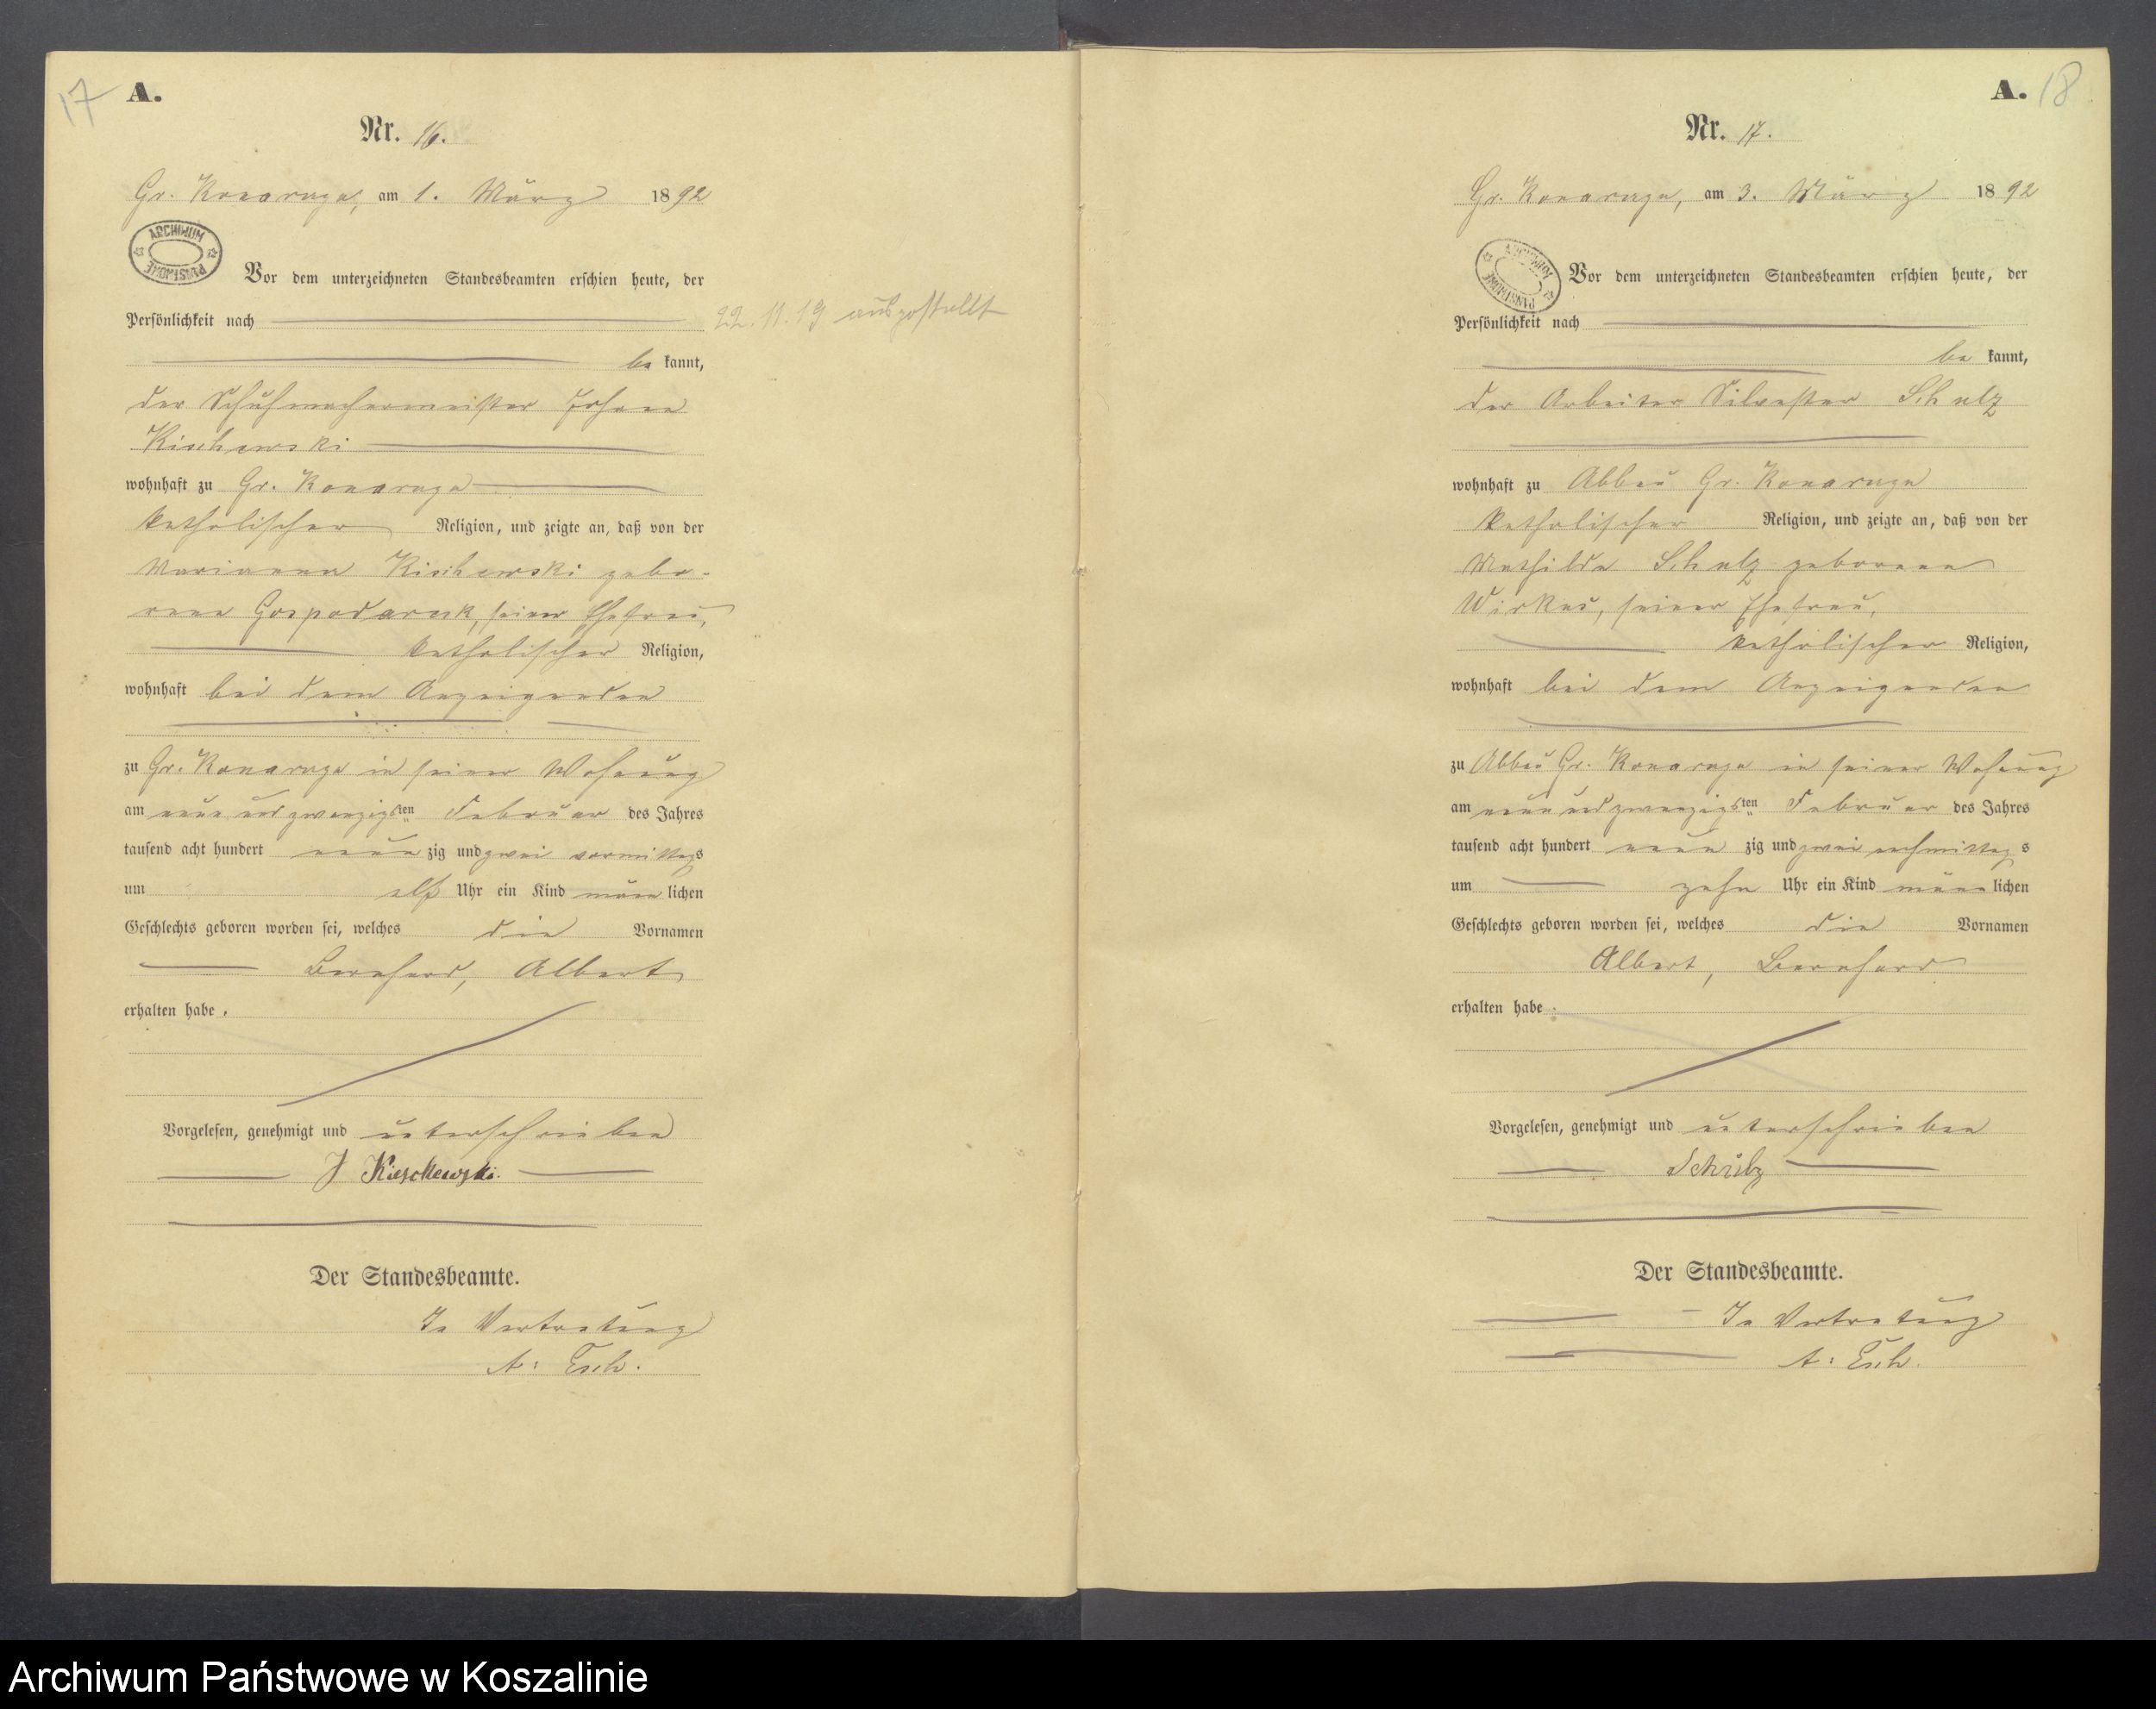 17
A.
Nr. 16.
Gr. Konarzyn, am 1. März 1892
ARCHIWUM PAŃSTWOWE
Vor dem unterzeichneten Standesbeamten erschien heute, der
Persönlichkeit nach
be kannt,
der Schuhmachermeister Johann
Kischewski
wohnhaft zu Gr. Konarzyn
katholischer Religion, und zeigte an, daß von der
Marianna Kischewski gebo-
rene Gospodarek, seiner Ehefrau,
katholischer Religion,
wohnhaft bei dem Anzeigenden
zu Gr. Konarzyn in seiner Wohnung
am neun und zwanzigsten Februar des Jahres
tausend acht hundert neun zig und zwei vormittags
um elf Uhr ein Kind männ lichen
Geschlechts geboren worden sei, welches die Vornamen
Bernhard, Albert
erhalten habe.
Vorgelesen, genehmigt und unterschrieben
J Kieschewski.
Der Standesbeamte.
In Vertretung
A: Esch.
22.11.19 ausgestellt
A. 18
Nr. 17.
Gr. Konarzyn, am 3. März 1892
ARCHIWUM PAŃSTWOWE
Vor dem unterzeichneten Standesbeamten erschien heute, der
Persönlichkeit nach
be kannt,
der Arbeiter Silvester Schulz
wohnhaft zu Abbau Gr. Konarzyn
katholischer Religion, und zeigte an, daß von der
Mathilde Schulz geborene
Wirkus, seiner Ehefrau,
katholischer Religion,
wohnhaft bei dem Anzeigenden
zu Abbau Gr. Konarzyn in seiner Wohnung
am neun und zwanzigsten Februar des Jahres
tausend acht hundert neun zig und zwei nachmittags
um zehn Uhr ein Kind männ lichen
Geschlechts geboren worden sei, welches die Vornamen
Albert, Bernhard
erhalten habe.
Vorgelesen, genehmigt und unterschrieben
Schulz
Der Standesbeamte.
In Vertretung
A: Esch.
Archiwum Państwowe w Koszalinie